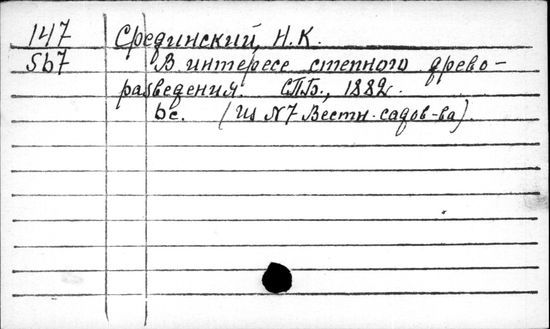 147 Срединский, Н.К.
Sb7 В интересе степного древо-
разведения. СПб., 1882.
6с. (Из N7 Вестн. садов-ва).